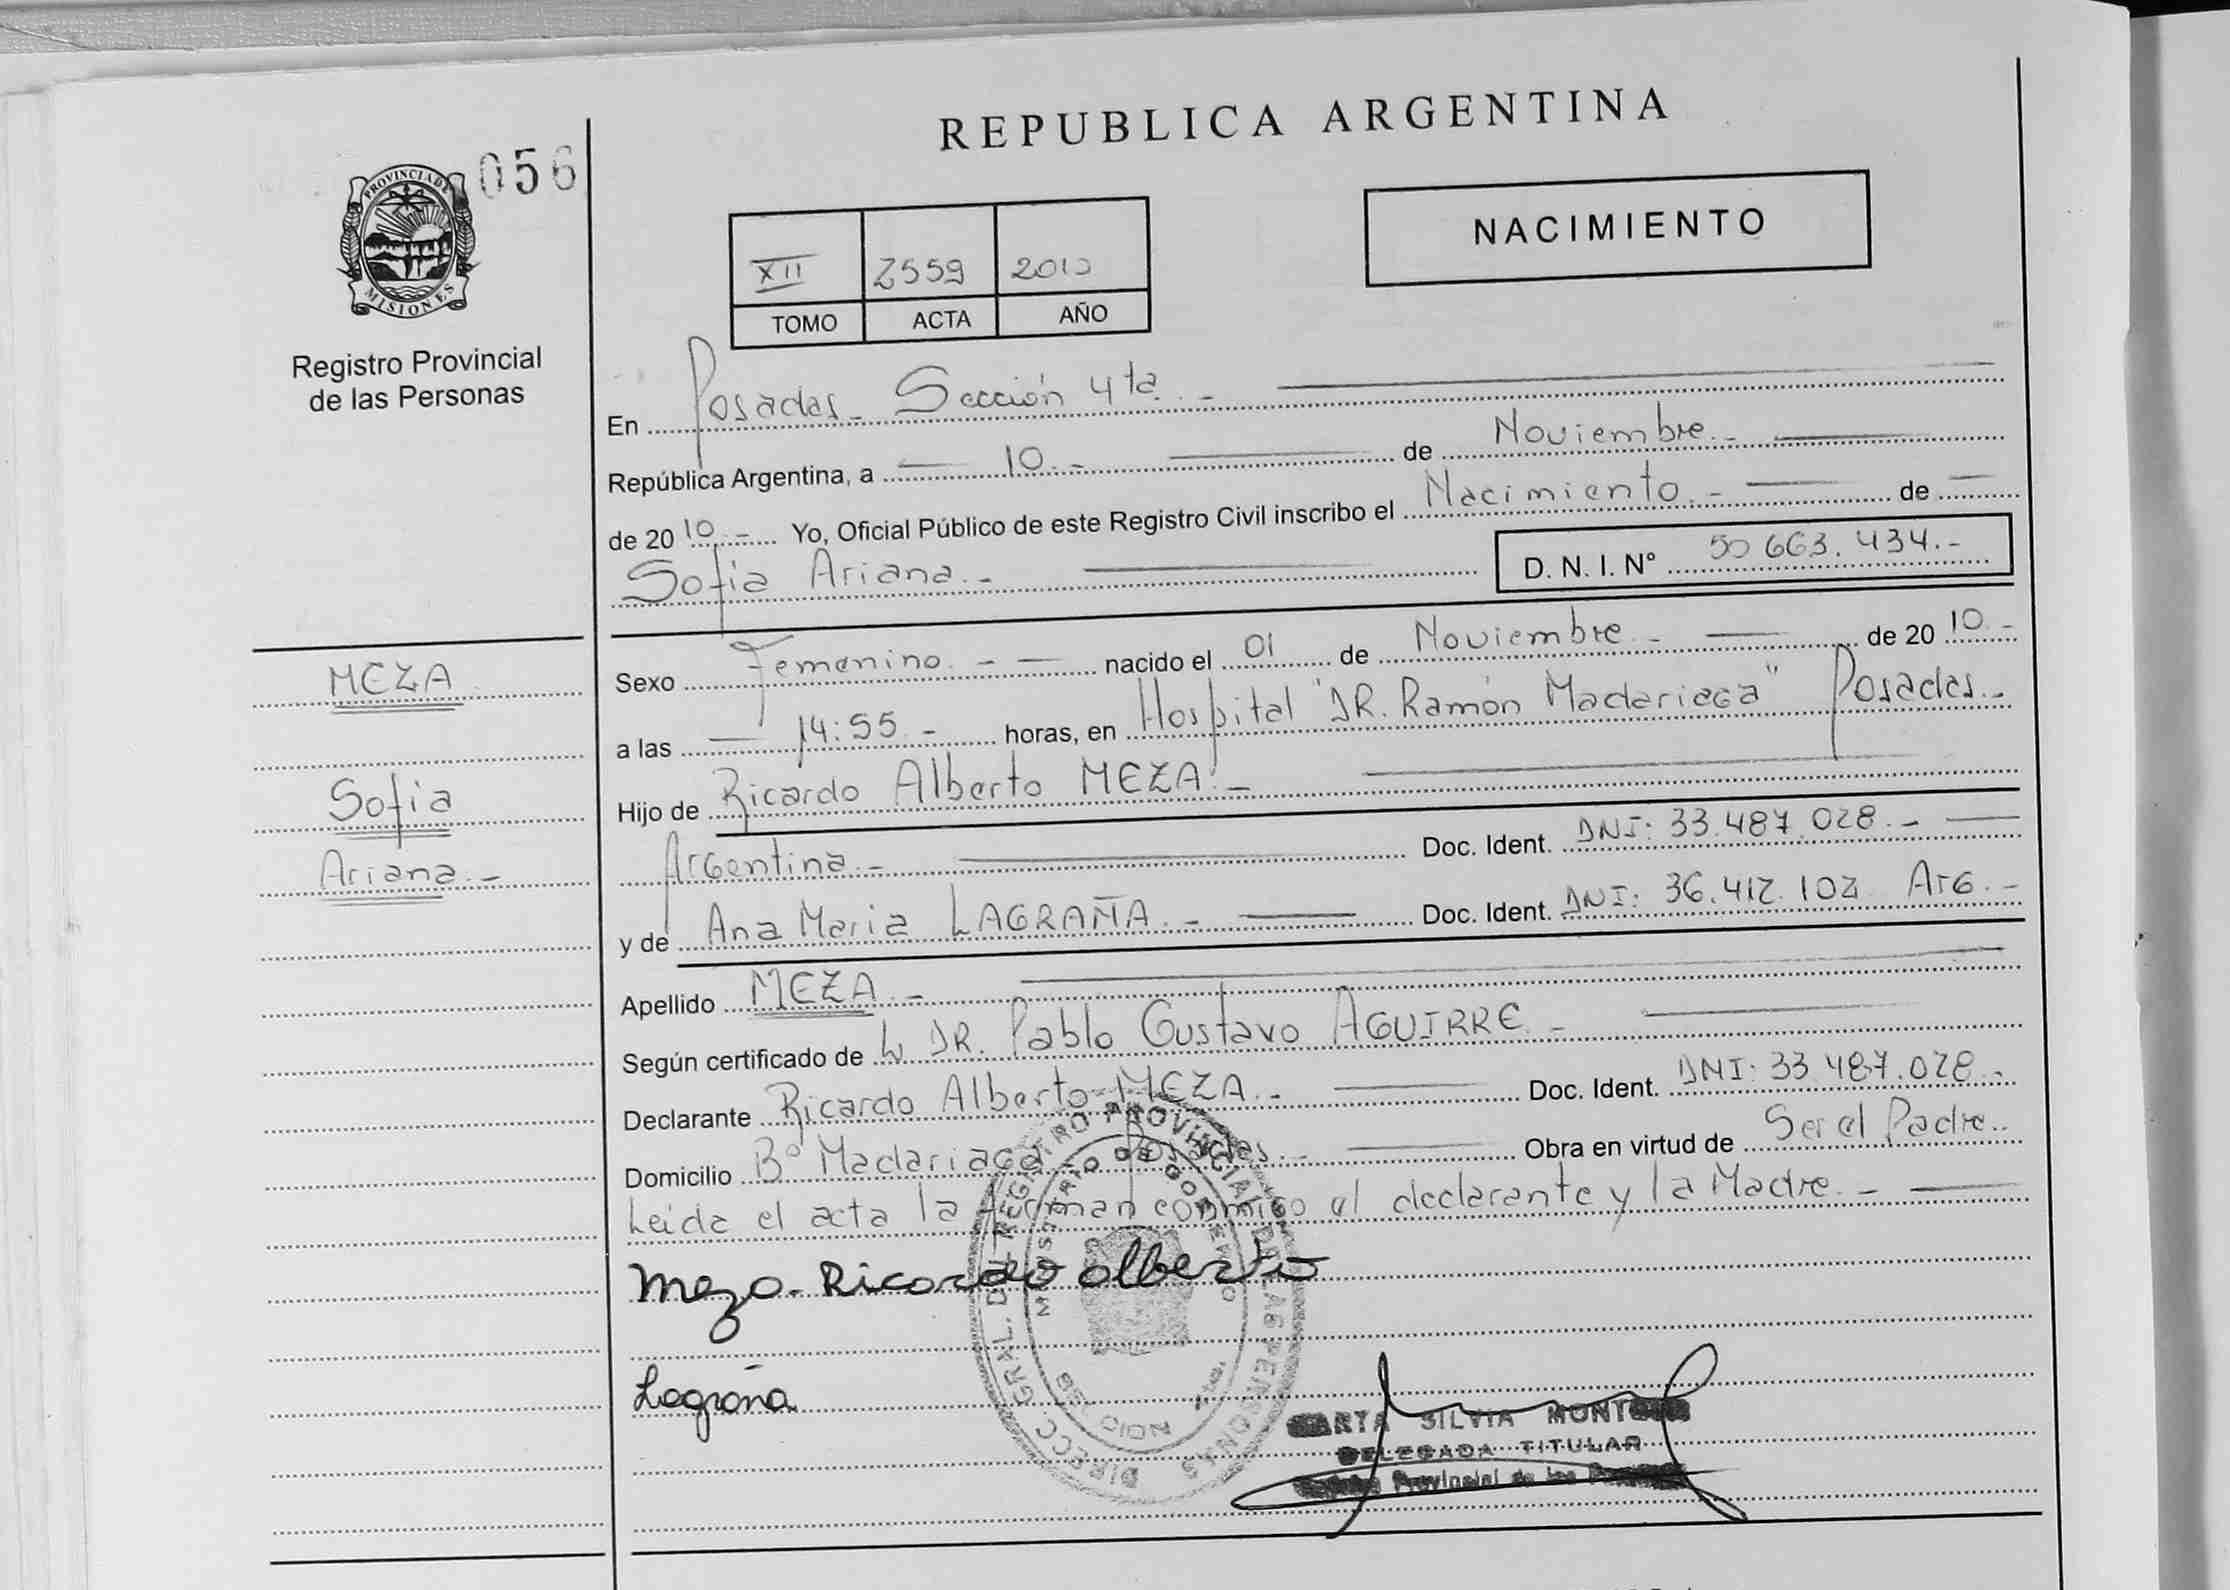 REPUBLICA ARGENTINA
056
PROVINCIA DE
MISIONES
Registro Provincial
de las Personas
NACIMIENTO
XII 2559 2010
TOMO ACTA AÑO
En Posadas.- Sección 4ta.-
República Argentina, a 10.- de Noviembre.-
de 2010.- Yo, Oficial Público de este Registro Civil inscribo el Nacimiento.- de
Sofia Ariana.- D. N. I. Nº 50 663.434.-
Sexo Femenino.- nacido el 01 de Noviembre.- de 2010.-
a las 14:55.- horas, en Hospital "DR. Ramón Madariaga" Posadas.-
Hijo de Ricardo Alberto MEZA.-
Argentina.- Doc. Ident. DNI: 33.487.028.-
y de Ana Maria LAGRAÑA.- Doc. Ident. DNI: 36.412.102 Arg.-
Apellido MEZA.-
Según certificado de DR. Pablo Gustavo AGUIRRE.-
Declarante Ricardo Alberto MEZA.- Doc. Ident. DNI: 33.487.028.-
Domicilio Bº Madariaga - Posadas.- Obra en virtud de Ser el Padre.-
Leida el acta la firman conmigo el declarante y la Madre.-
Meza. Ricardo Alberto
Lagraña
SILVIA
DELEGADA TITULAR
Provincial de las
MEZA
Sofia
Ariana.-
DIRECC. GRAL. DEL REGISTRO PROVINCIAL DE LAS PERSONAS
MINISTERIO DE GOBIERNO